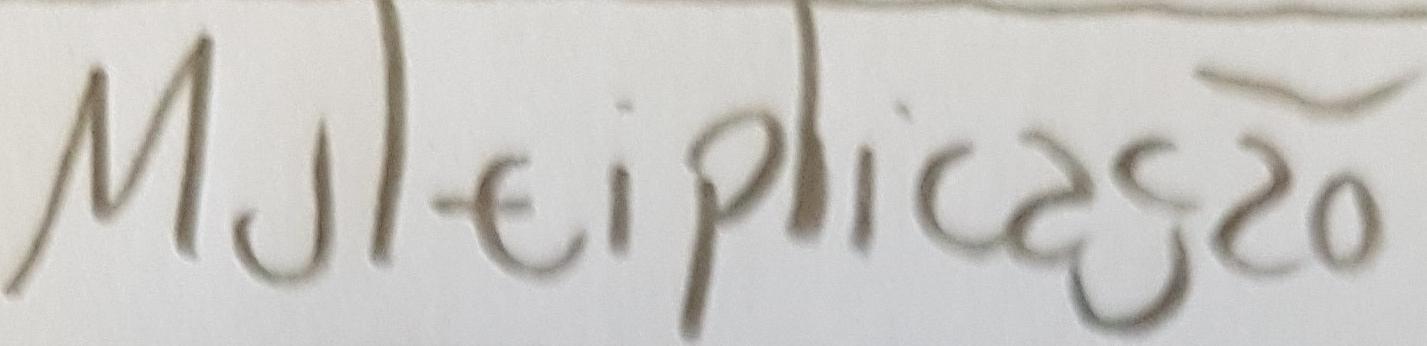 Multiplicação